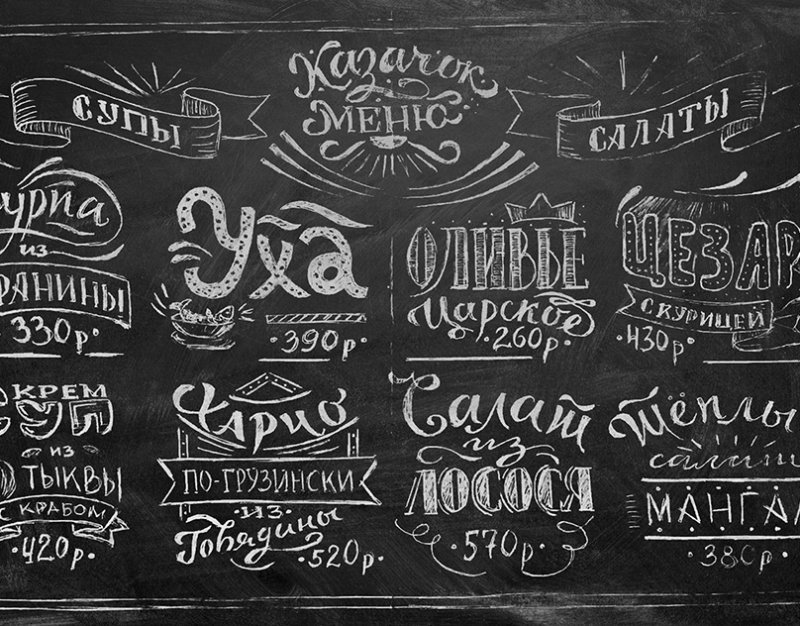 Казачок
МЕНЮ
СУПЫ
САЛАТЫ
ИЗ
330р.
Уха
·390р·
ОЛИВЬЕ
Царское
·260р·
С КУРИЦЕЙ
·430р·
КРЕМ
СУП
ИЗ
ТЫКВЫ
С КРАБОМ
·420р·
Харчо
ПО-ГРУЗИНСКИ
·ИЗ·
Говядины
·520р·
Салат
из
ЛОСОСЯ
·570р·
Тёплы
салат
МАНГАЛ
·380р·